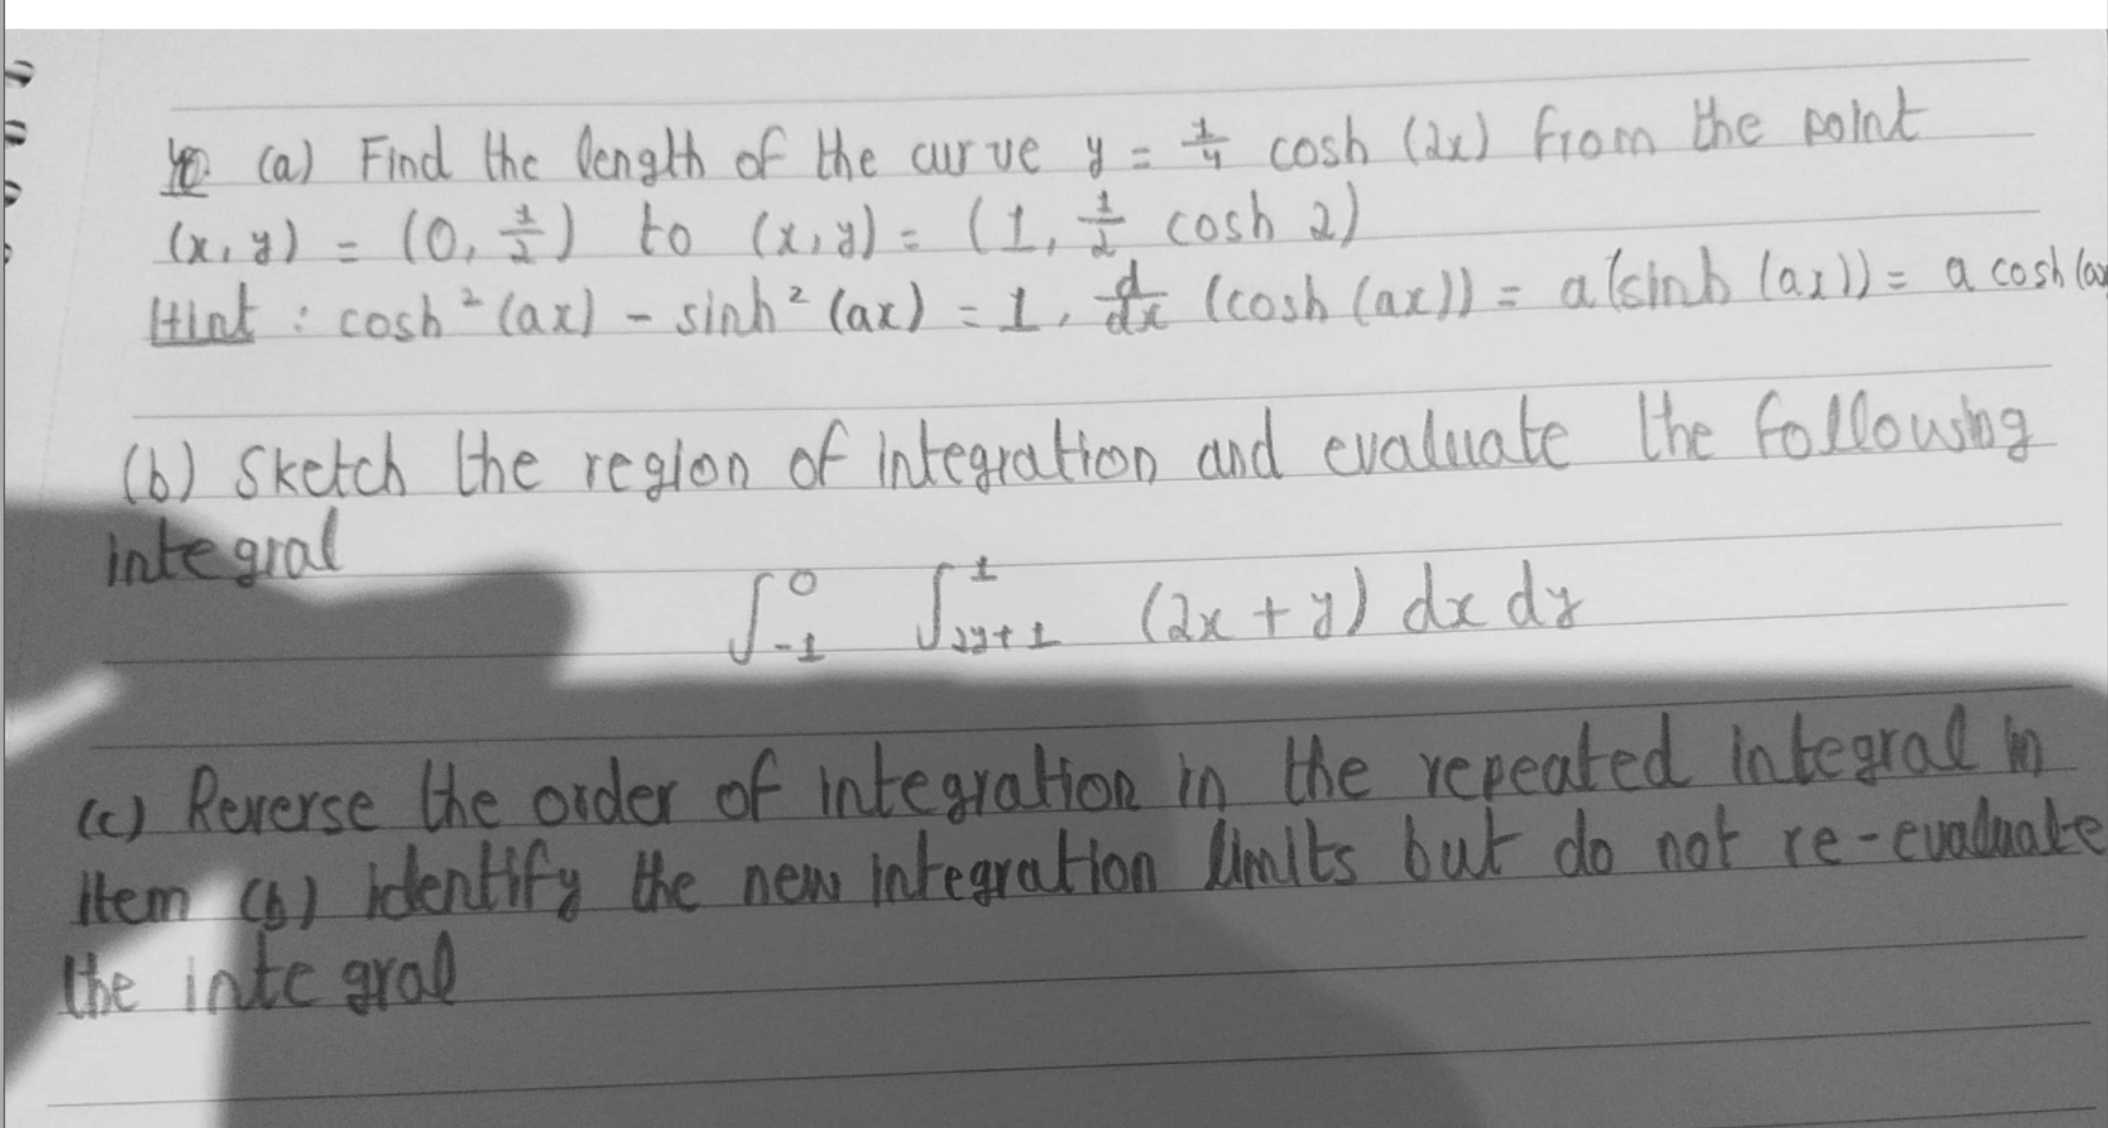 (a) Find the length of the curve y = 1/4 cosh (2x) from the point
(x, y) = (0, 1/2) to (x, y) = (1, 1/2 cosh 2)
Hint : cosh² (ax) - sinh² (ax) = 1, d/dx (cosh (ax)) = a (sinh (ax)) = a cosh (ax
(b) Sketch the region of integration and evaluate the following
integral
∫₋₁⁰ ∫₂ᵧ₊₁¹ (2x + y) dx dy
(c) Reverse the order of integration in the repeated integral in
item (b) identify the new integration limits but do not re-evaluate
the integral